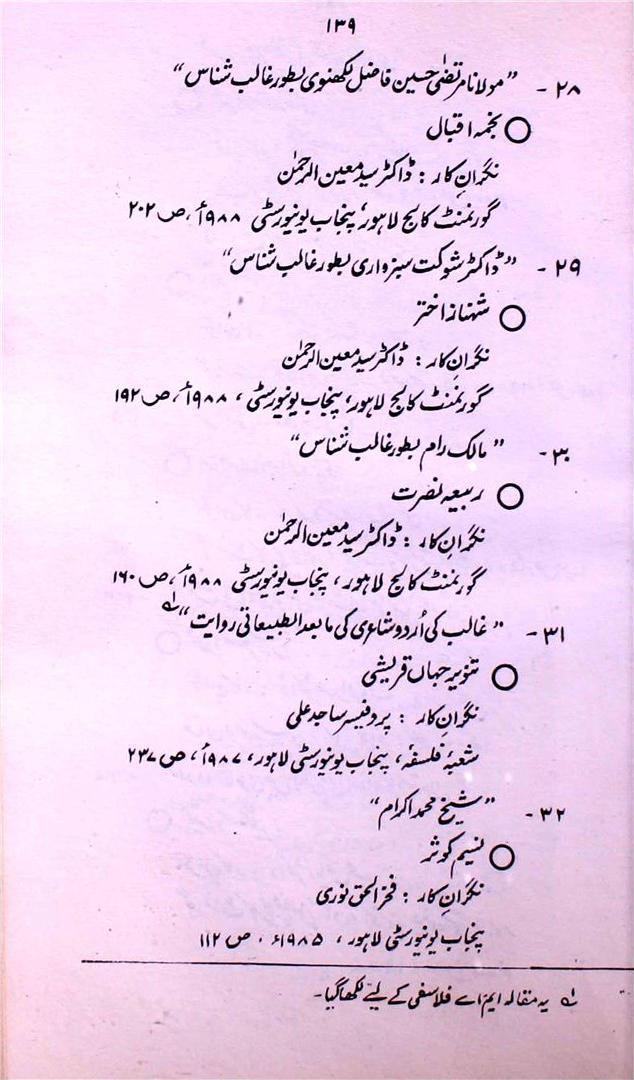 ۱۳۹
۲۸ - "مولانا مرتضیٰ حسین فاضل لکھنوی بطور غالب شناس"
○ نجمہ اقبال
نگرانِ کار : ڈاکٹر سید معین الرحمٰن
گورنمنٹ کالج لاہور، پنجاب یونیورسٹی ۱۹۸۸ء، ص ۲۰۲
۲۹ - "ڈاکٹر شوکت سبزواری بطور غالب شناس"
○ شہناز اختر
نگرانِ کار : ڈاکٹر سید معین الرحمٰن
گورنمنٹ کالج لاہور، پنجاب یونیورسٹی ، ۱۹۸۸ء، ص ۱۹۲
۳۰ - "مالک رام بطور غالب شناس"
○ ربیعہ نصرت
نگرانِ کار : ڈاکٹر سید معین الرحمٰن
گورنمنٹ کالج لاہور ، پنجاب یونیورسٹی ۱۹۸۸ء، ص ۱۶۰
۳۱ - "غالب کی اُردو شاعری کی مابعد الطبیعاتی روایت" لہ
○ تنویر جہاں قریشی
نگرانِ کار : پروفیسر ساجد علی
شعبۂ فلسفہ، پنجاب یونیورسٹی لاہور، ۱۹۸۷ء، ص ۲۳۷
۳۲ - "شیخ محمد اکرام"
○ نسیم کوثر
نگرانِ کار : فخر الحق نوری
پنجاب یونیورسٹی لاہور ، ۱۹۸۵ء ، ص ۱۱۲
لہ یہ مقالہ ایم اے فلاسفی کے لیے لکھا گیا۔